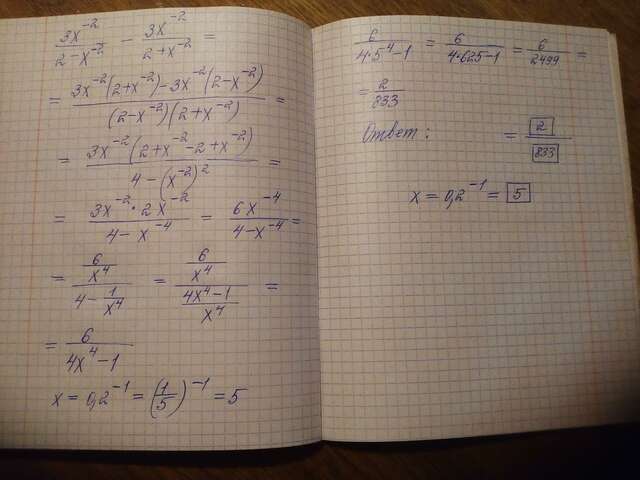 3x⁻²/(2-x⁻²) - 3x⁻²/(2+x⁻²) =
= (3x⁻²(2+x⁻²)-3x⁻²(2-x⁻²))/((2-x⁻²)(2+x⁻²)) =
= (3x⁻²(2+x⁻²-2+x⁻²))/(4-(x⁻²)²) =
= (3x⁻²·2x⁻²)/(4-x⁻⁴) = 6x⁻⁴/(4-x⁻⁴) =
= (6/x⁴)/(4-1/x⁴) = (6/x⁴)/((4x⁴-1)/x⁴) =
= 6/(4x⁴-1)
x = 0,2⁻¹ = (1/5)⁻¹ = 5
6/(4·5⁴-1) = 6/(4·625-1) = 6/2499 =
= 2/833
Ответ: = 2/833
x = 0,2⁻¹ = 5